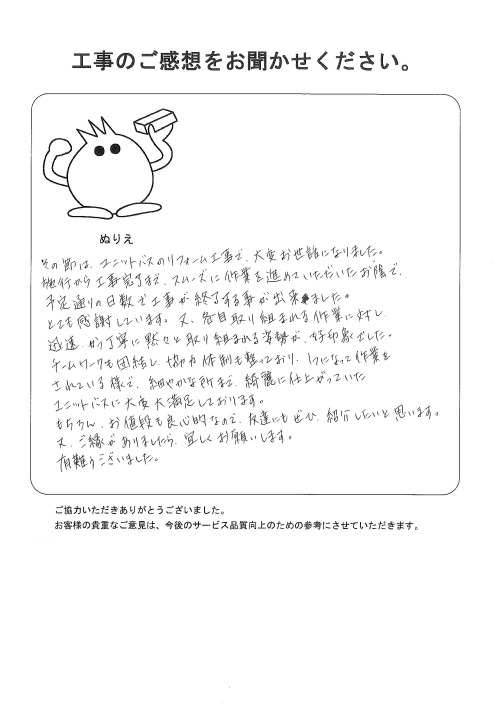 工事のご感想をお聞かせください。
ぬりえ
その節は、ユニットバスのリフォーム工事で、大変お世話になりました。
施行から工事完了まで、スムーズに作業を進めていただいたお陰で、
予定通りの日数で工事が終了する事が出来ました。
とても感謝しています。又、各自取り組まれる作業に対し、
迅速、かつ丁寧に黙々と取り組まれる姿勢が、好印象でした。
チームワークも団結し、協力体制も整っており、1つになって作業を
されている様で、細やかな所まで、綺麗に仕上がっていた
ユニットバスに大変大満足しております。
もちろん、お値段も良心的なので、友達にもぜひ、紹介したいと思います。
又、ご縁がありましたら、宜しくお願いします。
有難うございました。
ご協力いただきありがとうございました。
お客様の貴重なご意見は、今後のサービス品質向上のための参考にさせていただきます。